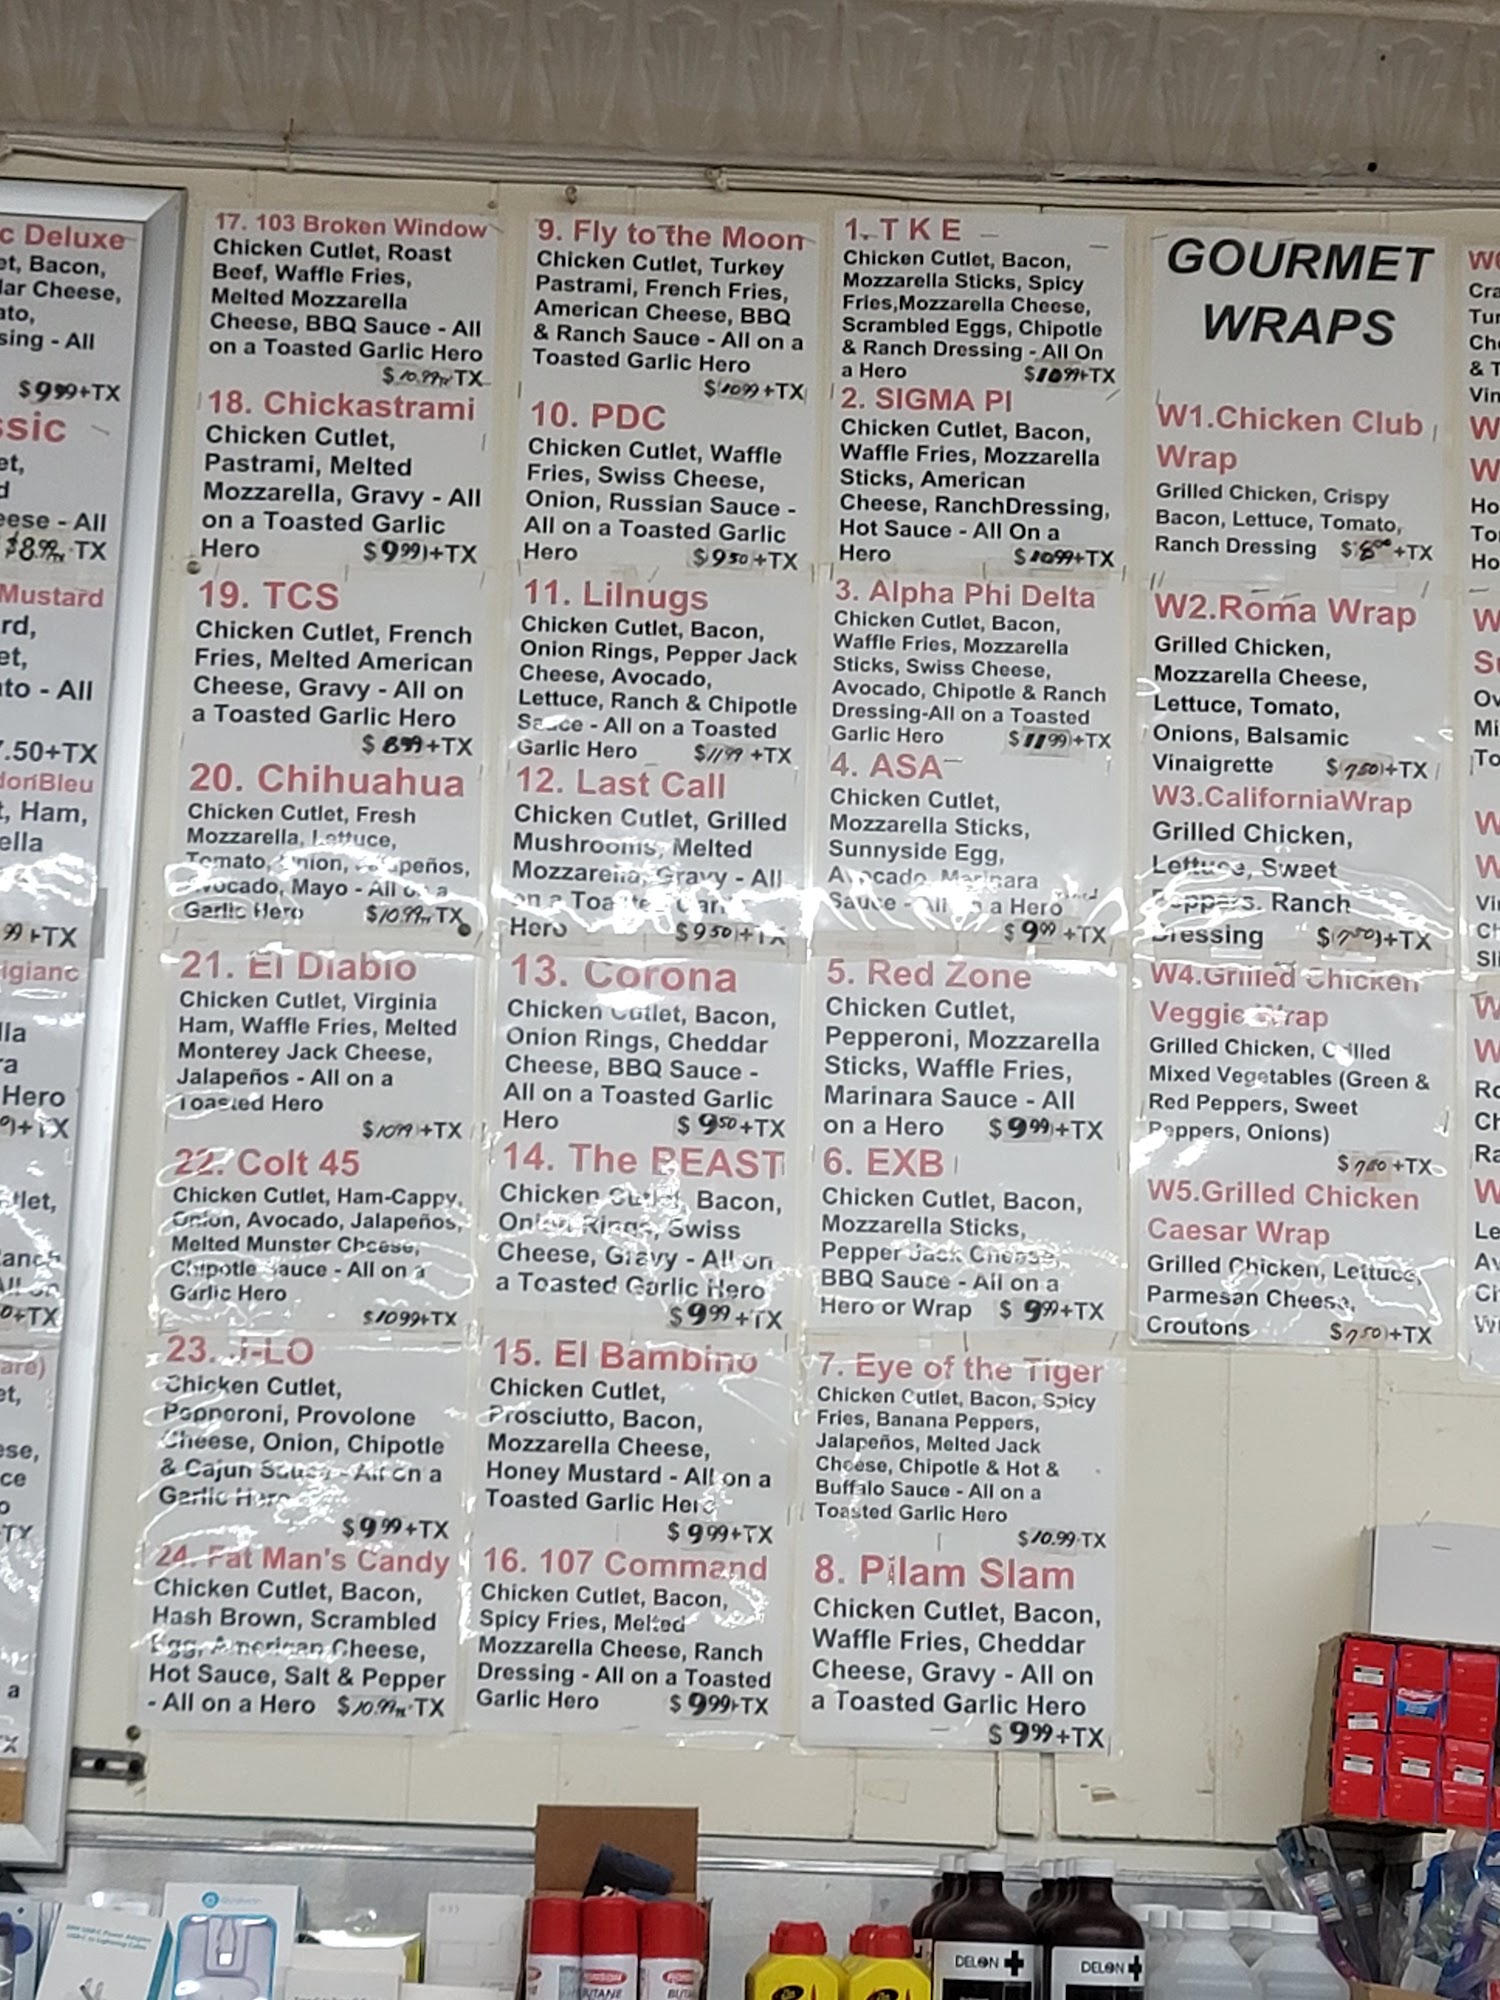 c Deluxe
et, Bacon,
lar Cheese,
ato,
sing - All
$9.99+TX
ssic
et,
d
eese - All
$8.99 TX
Mustard
rd,
et,
ato - All
7.50+TX
donBleu
t, Ham,
ella
99 +TX
igianc
lla
ra
Hero
+TX
tlet,
Ranch
All on
0+TX
are)
et,
ese,
ce
o
TX
a
TX
17. 103 Broken Window
Chicken Cutlet, Roast
Beef, Waffle Fries,
Melted Mozzarella
Cheese, BBQ Sauce - All
on a Toasted Garlic Hero
$10.99 TX
18. Chickastrami
Chicken Cutlet,
Pastrami, Melted
Mozzarella, Gravy - All
on a Toasted Garlic
Hero $9.99+TX
19. TCS
Chicken Cutlet, French
Fries, Melted American
Cheese, Gravy - All on
a Toasted Garlic Hero
$8.99+TX
20. Chihuahua
Chicken Cutlet, Fresh
Mozzarella, Lettuce,
Tomato, Onion, Jalapeños,
Avocado, Mayo - All on a
Garlic Hero $10.99 TX
21. El Diablo
Chicken Cutlet, Virginia
Ham, Waffle Fries, Melted
Monterey Jack Cheese,
Jalapeños - All on a
Toasted Hero
$10.99 +TX
22. Colt 45
Chicken Cutlet, Ham-Cappy,
Onion, Avocado, Jalapeños,
Melted Munster Cheese,
Chipotle Sauce - All on a
Garlic Hero
$10.99+TX
23. J-LO
Chicken Cutlet,
Pepperoni, Provolone
Cheese, Onion, Chipotle
& Cajun Sauce - All on a
Garlic Hero
$9.99+TX
24. Fat Man's Candy
Chicken Cutlet, Bacon,
Hash Brown, Scrambled
Egg, American Cheese,
Hot Sauce, Salt & Pepper
- All on a Hero $10.99 TX
9. Fly to the Moon
Chicken Cutlet, Turkey
Pastrami, French Fries,
American Cheese, BBQ
& Ranch Sauce - All on a
Toasted Garlic Hero
$10.99 +TX
10. PDC
Chicken Cutlet, Waffle
Fries, Swiss Cheese,
Onion, Russian Sauce -
All on a Toasted Garlic
Hero $9.50+TX
11. Lilnugs
Chicken Cutlet, Bacon,
Onion Rings, Pepper Jack
Cheese, Avocado,
Lettuce, Ranch & Chipotle
Sauce - All on a Toasted
Garlic Hero $11.99 +TX
12. Last Call
Chicken Cutlet, Grilled
Mushrooms, Melted
Mozzarella, Gravy - All
on a Toasted Garlic
Hero $9.50+TX
13. Corona
Chicken Cutlet, Bacon,
Onion Rings, Cheddar
Cheese, BBQ Sauce -
All on a Toasted Garlic
Hero $9.50+TX
14. The BEAST
Chicken Cutlet, Bacon,
Onion Rings, Swiss
Cheese, Gravy - All on
a Toasted Garlic Hero
$9.99+TX
15. El Bambino
Chicken Cutlet,
Prosciutto, Bacon,
Mozzarella Cheese,
Honey Mustard - All on a
Toasted Garlic Hero
$9.99+TX
16. 107 Command
Chicken Cutlet, Bacon,
Spicy Fries, Melted
Mozzarella Cheese, Ranch
Dressing - All on a Toasted
Garlic Hero $9.99+TX
1. T K E
Chicken Cutlet, Bacon,
Mozzarella Sticks, Spicy
Fries,Mozzarella Cheese,
Scrambled Eggs, Chipotle
& Ranch Dressing - All On
a Hero $10.99+TX
2. SIGMA PI
Chicken Cutlet, Bacon,
Waffle Fries, Mozzarella
Sticks, American
Cheese, RanchDressing,
Hot Sauce - All On a
Hero $10.99+TX
3. Alpha Phi Delta
Chicken Cutlet, Bacon,
Waffle Fries, Mozzarella
Sticks, Swiss Cheese,
Avocado, Chipotle & Ranch
Dressing-All on a Toasted
Garlic Hero $11.99+TX
4. ASA
Chicken Cutlet,
Mozzarella Sticks,
Sunnyside Egg,
Avocado, Marinara
Sauce - All on a Hero
$9.99 +TX
5. Red Zone
Chicken Cutlet,
Pepperoni, Mozzarella
Sticks, Waffle Fries,
Marinara Sauce - All
on a Hero $9.99+TX
6. EXB
Chicken Cutlet, Bacon,
Mozzarella Sticks,
Pepper Jack Cheese,
BBQ Sauce - All on a
Hero or Wrap $9.99+TX
7. Eye of the Tiger
Chicken Cutlet, Bacon, Spicy
Fries, Banana Peppers,
Jalapeños, Melted Jack
Cheese, Chipotle & Hot &
Buffalo Sauce - All on a
Toasted Garlic Hero
$10.99 TX
8. Pilam Slam
Chicken Cutlet, Bacon,
Waffle Fries, Cheddar
Cheese, Gravy - All on
a Toasted Garlic Hero
$9.99+TX
GOURMET
WRAPS
W1.Chicken Club
Wrap
Grilled Chicken, Crispy
Bacon, Lettuce, Tomato,
Ranch Dressing $8.00+TX
W2.Roma Wrap
Grilled Chicken,
Mozzarella Cheese,
Lettuce, Tomato,
Onions, Balsamic
Vinaigrette $7.50+TX
W3.CaliforniaWrap
Grilled Chicken,
Lettuce, Sweet
Peppers, Ranch
Dressing $7.50+TX
W4.Grilled Chicken
Veggie Wrap
Grilled Chicken, Grilled
Mixed Vegetables (Green &
Red Peppers, Sweet
Peppers, Onions)
$7.50+TX
W5.Grilled Chicken
Caesar Wrap
Grilled Chicken, Lettuce,
Parmesan Cheese,
Croutons $7.50+TX
Cra
Tur
Che
& T
Vin
W
W
Ho
To
Ho
W
Su
Ov
Mi
To
W
W
Vi
Ch
Sli
W
W
Ro
Ch
Ra
W
Le
Av
Ch
Wr
BUTANE
BUTANE
DELON
DELON